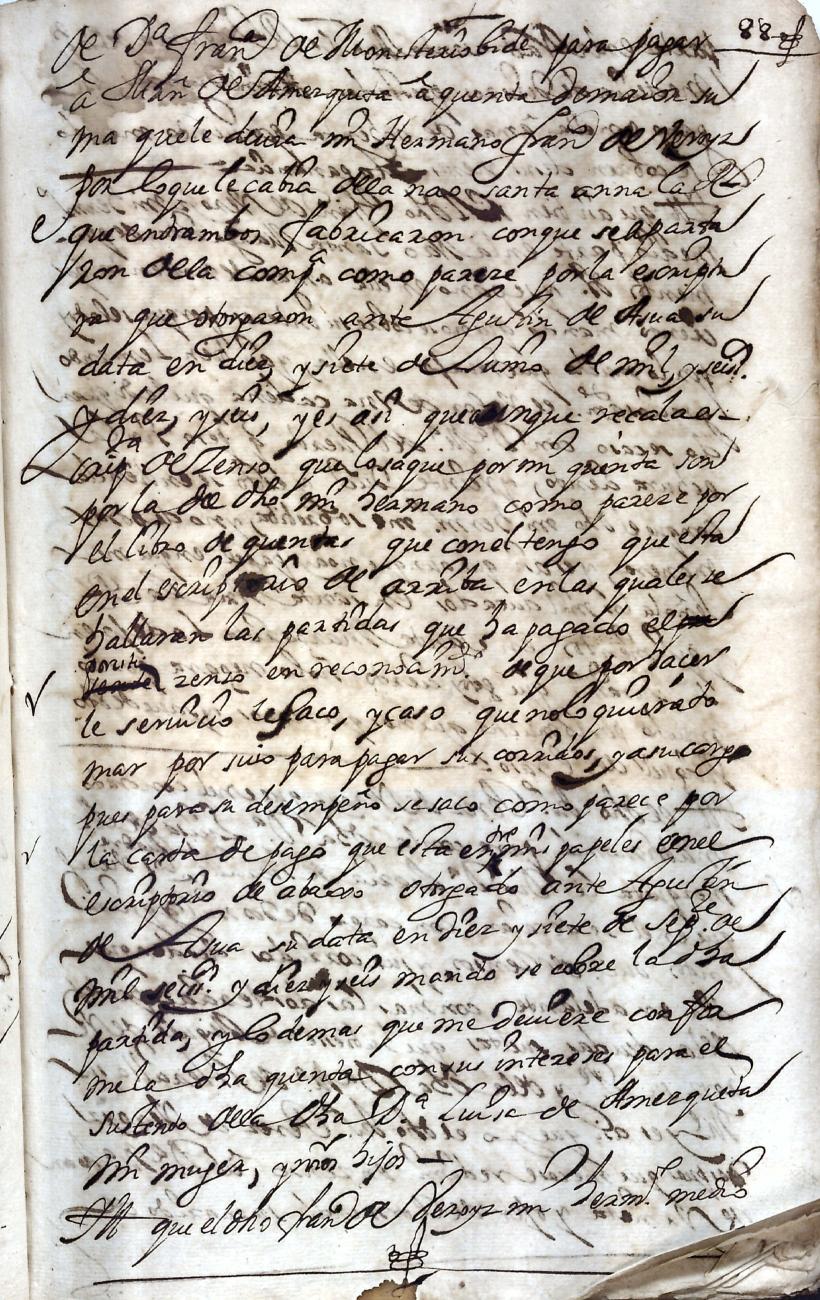 88
de Da franca de Monesteriobide para pagar
a Mīn de Amezqueta a quenta demaior su
ma que le devia mi Hermano franco de Veroyz
por lo que le cabia della nao santa anna la Rl
que entrambos fabricaron con que se aparta
ron della compa como pareze por la escriptu
ra que otorgaron ante Agustin de Asua su
data en diez y siete de Junio de mil y seiso.
y diez, y seis, y es asi que aunque recala es
de Zenso que lo saque por mi quenta son
por la de dho mi hermano como pareze por
el libro de quentas que con el tengo que esta
en el escriptorio de arriba en las quales se
hallaran las partidas que ha pagado el
por su zenso en reconosimto de que por hacer
le servicio le saco, y caso que no lo quiera to
mar por suio para pagar sus corridos, y a su cargo
pues para su desempeño se saco como parece por
la carta de pago que esta entre mis papeles en el
escriptorio de abaxo otorgado ante Agustin
de Asua su data en diez y siete de sepe. de
mil seiso. y diez y seis mando se cobre la dha
partida, y lo demas que me deviere confor
me la dha quenta con sus intereses para el
sustento della dha Da Luisa de Amezqueta
mi muger, y mios hijos
Itt que el dho franco de Veroyz mi hermo medio